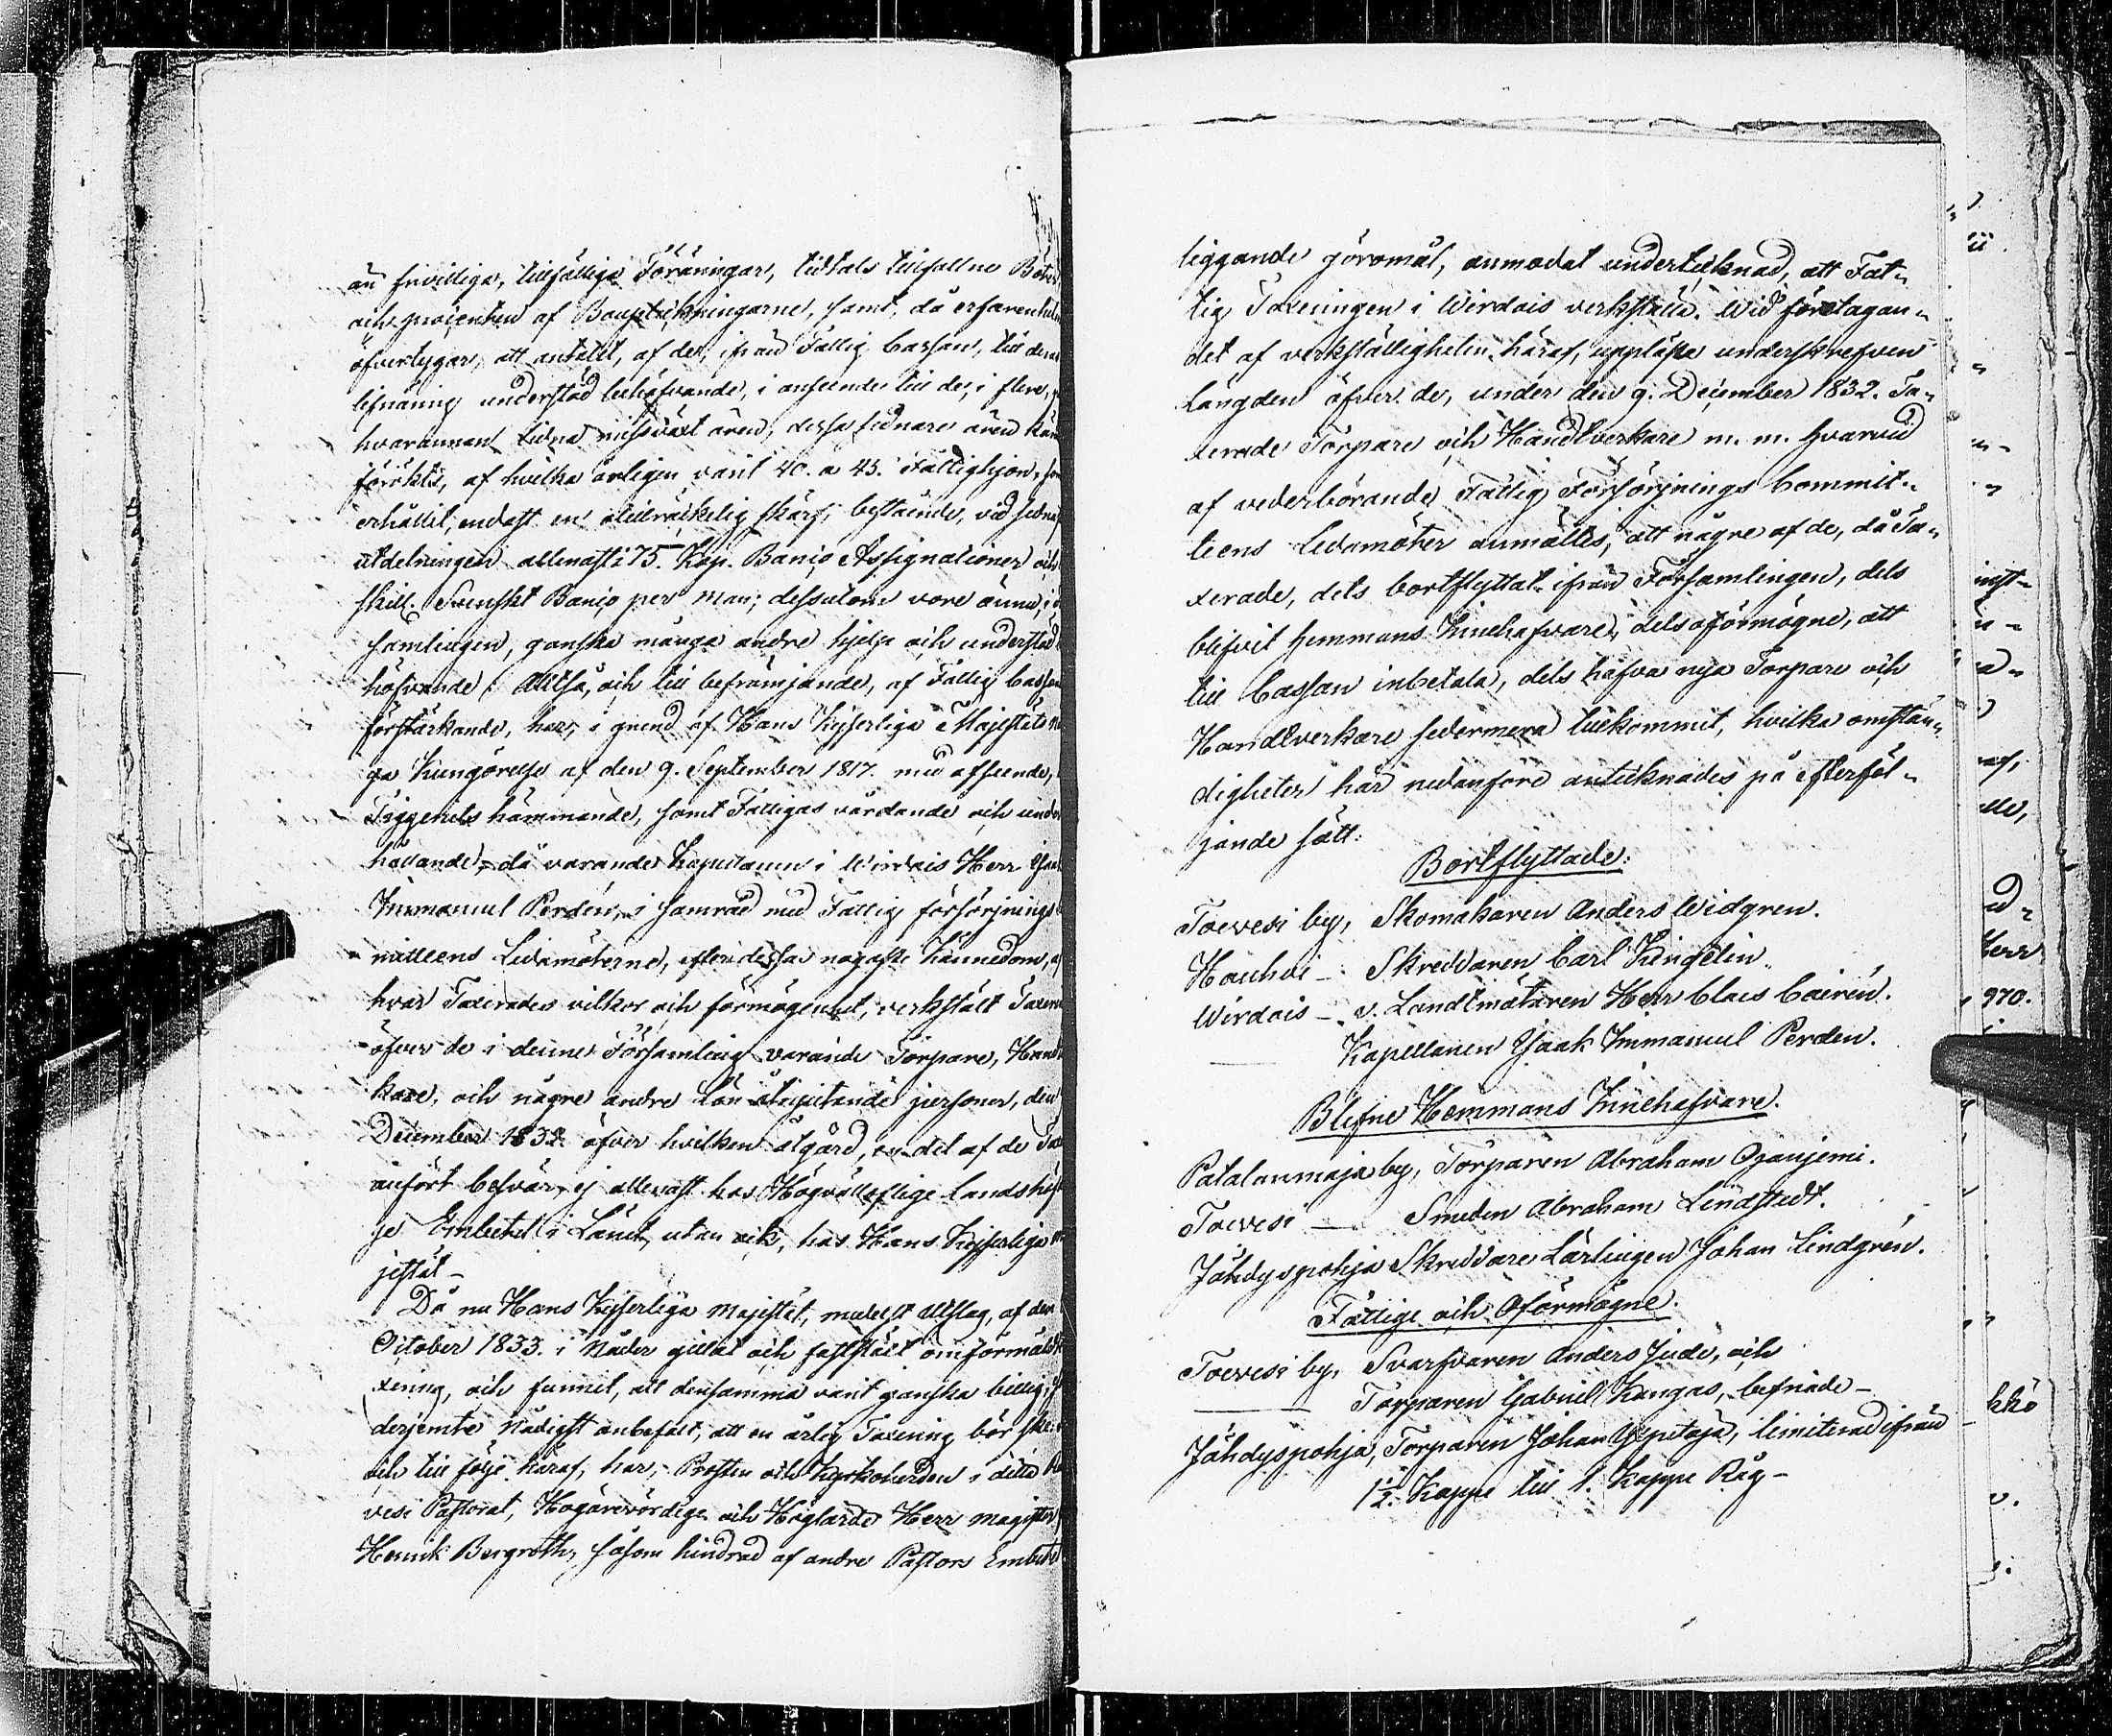 än frivilliga, tillfällige Föräningar, tidtals tillfallne Böter
och procenten af Bouptekningarne, samt, då erfarenheten
öfvertygar, att antalet, af de, ifrån Fattig Cassan, till deras
lifnäring understöd behöfvande, i anseende till de, i flere,
hvarannan lidna missväxt åren, dessa sednare åren
förökts, af hvilka årligen varit 40. a 45. Fattighjon, som
erhållit, endast en otillräckelig skärf, bestående, vid sedna
utdelningen allenast i 75. Kop. Banco Assignationer och
skill. Svenskt Banco per man; dessutom vore ännu, i
samlingen, ganska många andre hjelp och understöd
höfvande; Alltså, och till befrämjande, af Fattig Cassans
förstärkande, har, i grund af Hans Kejserliga Majestäts
ga Kungörelse af den 9. September 1817. med afseende,
Tiggeriets hämmande, samt Fattigas vårdande och under
hållande, då varande Kapellanen i Wirdois Herr Isaak
Immanuel Perdén, i samråd med Fattig försörjnings
mitteens Ledamöterne, efter dessas nogaste kännedom, af
hvar Taxerades vilkor och förmögenhet, verkstält Taxering
öfver de i denne Församling varande Torpare, Hand
kare, och någre andre Lön åtnjutande personer, den
December 1832. öfver hvilken åtgärd, en del af de
anfört besvär, ej allenast hos Högvällofliga Landshöf
ge Embetet i Länet, utan ock, hos Hans Kejserliga
jestät –
Då nu Hans Kejserliga Majestät, medelst Utslag, af den
October 1833. i Nåder gillat och faststält omförmälde
xering, och funnit, att densamma varit ganska billig,
derjemte Nådigst anbefalt, att en årlig Taxering bör ske
och till följe häraf, har, Prosten och Kyrkoherden i detta
vesi Pastorat, Högärevördige och Höglärde Herr Magister
Henrik Bergroth, såsom hindrad af andre Pastors Embetet
liggande göromål, anmodat undertecknad, att Fat-
tig Taxeringen i Wirdois verkställa. Wid företagan-
det af verkställigheten häraf, upplästes underskrefven
längden öfver de, under den 9. December 1832. Ta-
xerade Torpare och Handtverkare m. m. hvarvid
af vederbörande Fattig Försörjnings Commit-
teens Ledamöter anmältes, att någre af de, då Ta-
xerade, dels bortflyttat ifrån Församlingen, dels
blifvit hemmans Innehafvare, dels oförmögne, att
till Cassan inbetala, dels hafva nya Torpare och
Handtverkare sedermera tilkommit, hvilka omstän-
digheter här nedanföre antecknades på efterföl-
jande sätt:
Bortflyttade:
Toevesi by, Skomakaren Anders Widgren.
Hauhoi – Skreddaren Carl Kingelin.
Wirdois – v. Landtmätaren Herr Claes Cairén.
— Kapellanen Isaak Immanuel Perden.
Blefne Hemmans Innehafvare.
Patalanmaja by, Torparen Abraham Ojanjemi.
Toevesi — Smeden Abraham Lindstedt.
Jähdyspohja Skreddare Lärlingen Johan Lindgrén.
Fattige och Oförmögne.
Toevesi by, Svarfvaren Anders Jude, och
— Torparen Gabriel Kangas, befriade –
Jähdyspohja, Torparen Johan Ypytäja, limiterad ifrån
1½. Kappe till 1. Kappe Råg –
Herr
970.
kkö